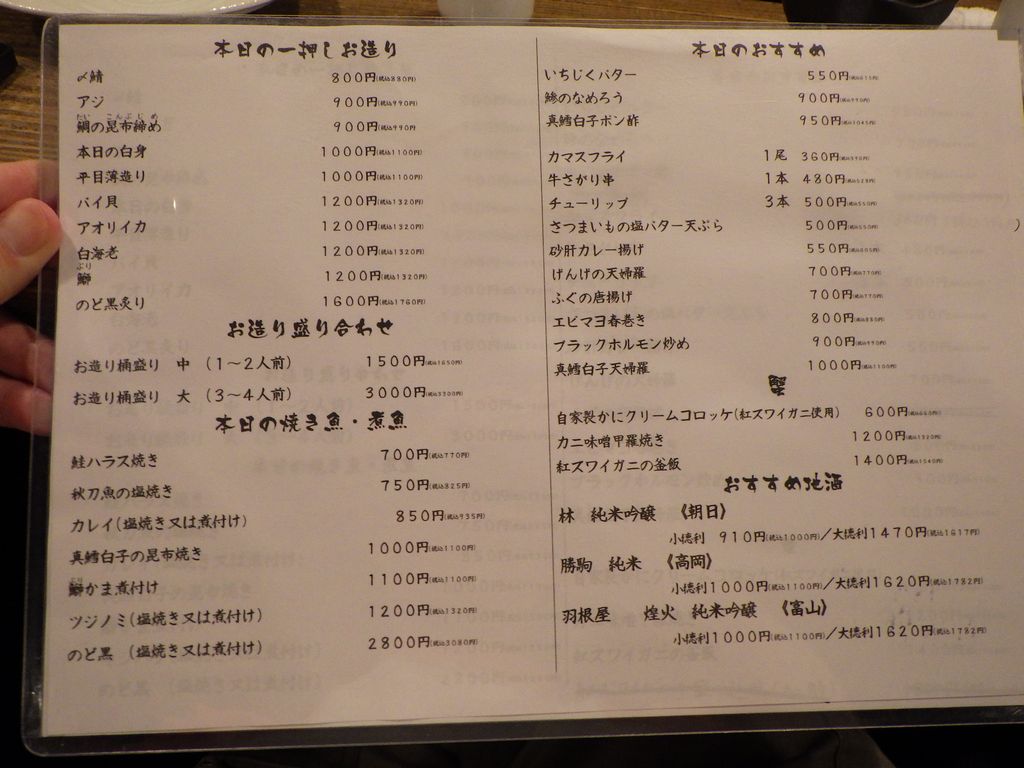 本日の一押しお造り
〆鯖 800円(税込880円)
アジ 900円(税込990円)
たい こんぶじめ
鯛の昆布締め 900円(税込990円
本日の白身 1000円(税込1100円)
平目薄造り 1000円(税込1100円)
バイ貝 1200円(税込1320円)
アオリイカ 1200円(税込1320円)
白海老 1200円(税込1320円)
ぶり
鰤 1200円(税込1320円)
のど黒炙り 1600円(税込1760円)
お造り盛り合わせ
お造り桶盛り 中 (1～2人前) 1500円(税込1650円)
お造り桶盛り 大 (3～4人前) 3000円(税込3300円)
本日の焼き魚・煮魚
鮭ハラス焼き 700円(税込770円)
秋刀魚の塩焼き 750円(税込825円)
カレイ(塩焼き又は煮付け) 850円(税込935円)
真鱈白子の昆布焼き 1000円(税込1100円)
ぶり
鰤かま煮付け 1100円(税込1100円)
ツジノミ(塩焼き又は煮付け) 1200円(税込1320円)
のど黒 (塩焼き又は煮付け) 2800円(税込3080円)
本日のおすすめ
いちじくバター 550円(税込615円)
鯵のなめろう 900円(税込990円)
真鱈白子ポン酢 950円(税込1045円)
カマスフライ 1尾 360円(税込396円)
牛さがり串 1本 480円(税込528円)
チューリップ 3本 500円(税込550円)
さつまいもの塩バター天ぷら 500円(税込550円)
砂肝カレー揚げ 550円(税込605円)
げんげの天婦羅 700円(税込770円)
ふぐの唐揚げ 700円(税込770円)
エビマヨ春巻き 800円(税込880円)
ブラックホルモン炒め 900円(税込990円)
真鱈白子天婦羅 1000円(税込1100円)
蟹
自家製かにクリームコロッケ(紅ズワイガニ使用) 600円(税込660円)
カニ味噌甲羅焼き 1200円(税込1320円)
紅ズワイガニの釜飯 1400円(税込1540円)
おすすめ地酒
林 純米吟醸 《朝日》
小徳利 910円(税込1000円)/大徳利1470円(税込1617円)
勝駒 純米 《高岡》
小徳利1000円(税込1100円)/大徳利1620円(税込1782円)
羽根屋 煌火 純米吟醸 《富山》
小徳利1000円(税込1100円)/大徳利1620円(税込1782円)